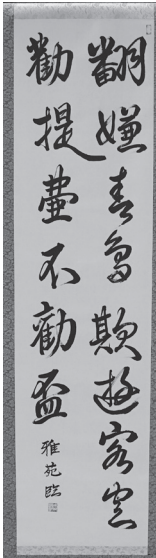 翻嫌春鳥欺遊客空
勸提壷不勸盃
雅苑臨